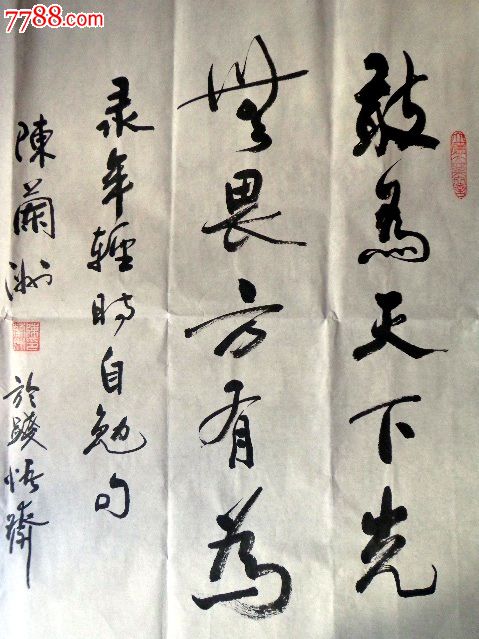 7788.com
敢為天下先
無畏方有為
录年輕時自勉句
陳蘭洲
於踐悟齋